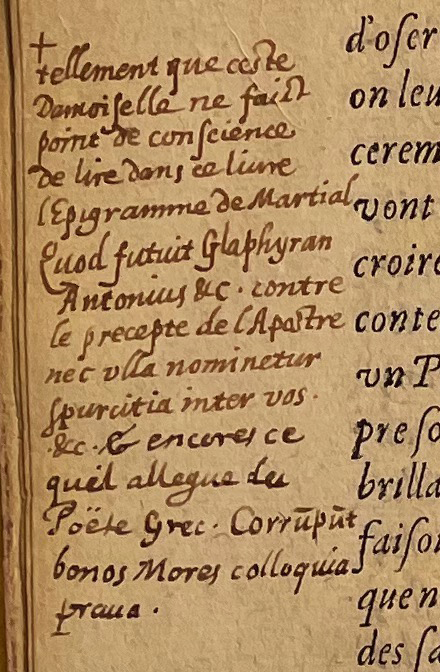 +
tellement que ceste
Damoiſelle ne faict
point de conſcience
de lire dans ce liure
l'Epigramme de Martial
Quod futuit Glaphyran
Antonius &c. contre
le precepte de l'Apostre
nec vlla nominetur
ſpurcitia inter vos.
&c. & encores ce
quel allegue du
Poëte Grec. Corrūpūt
bonos Mores colloquia
praua.
d'oſer
on leu
cerem
vont
croire
conte
vn P
preſo
brilla
faiſoi
que n
des ſa